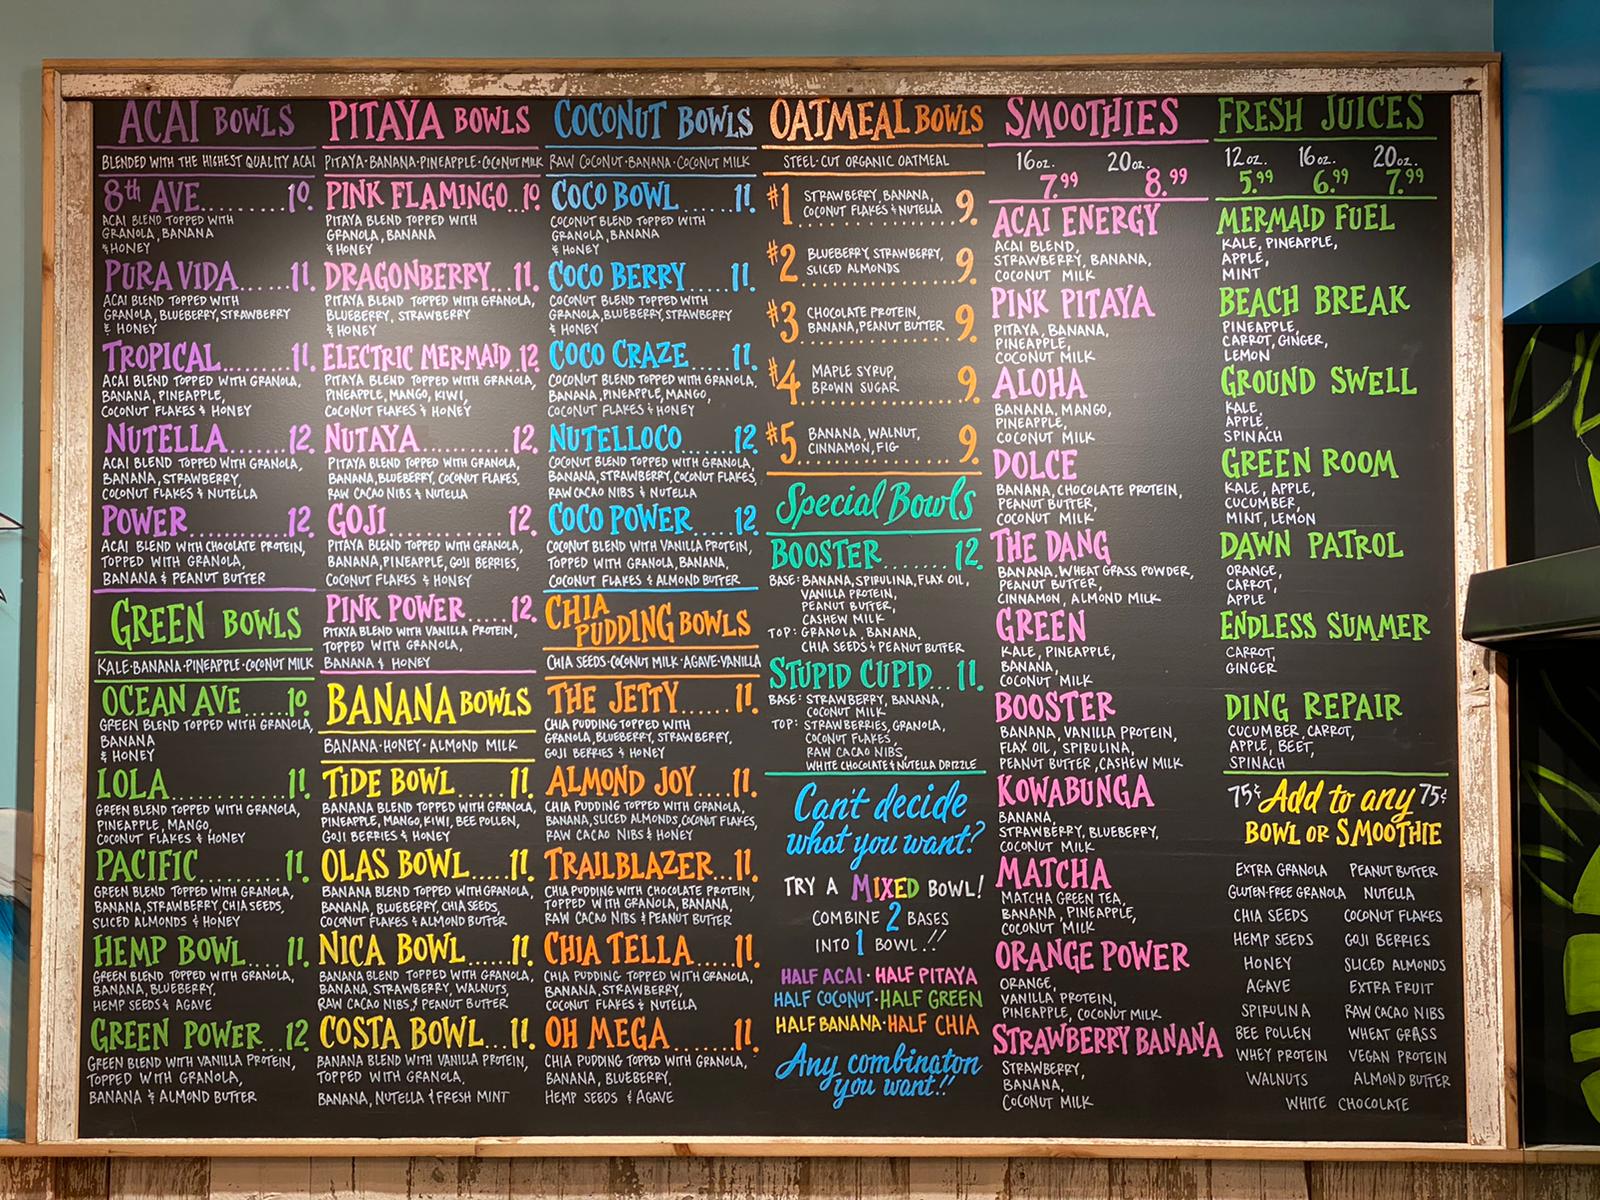 ACAI BOWLS
BLENDED WITH THE HIGHEST QUALITY ACAI
8th AVE........10.
ACAI BLEND TOPPED WITH
GRANOLA, BANANA
& HONEY
PURA VIDA......11.
ACAI BLEND TOPPED WITH
GRANOLA, BLUEBERRY, STRAWBERRY
& HONEY
TROPICAL.........11.
ACAI BLEND TOPPED WITH GRANOLA,
BANANA, PINEAPPLE,
COCONUT FLAKES & HONEY
NUTELLA........12.
ACAI BLEND TOPPED WITH GRANOLA,
BANANA, STRAWBERRY,
COCONUT FLAKES & NUTELLA
POWER..........12.
ACAI BLEND WITH CHOCOLATE PROTEIN,
TOPPED WITH GRANOLA,
BANANA & PEANUT BUTTER
GREEN BOWLS
KALE·BANANA·PINEAPPLE·COCONUT MILK
OCEAN AVE....10.
GREEN BLEND TOPPED WITH GRANOLA,
BANANA
& HONEY
LOLA............11.
GREEN BLEND TOPPED WITH GRANOLA,
PINEAPPLE, MANGO,
COCONUT FLAKES & HONEY
PACIFIC.........11.
GREEN BLEND TOPPED WITH GRANOLA,
BANANA, STRAWBERRY, CHIA SEEDS,
SLICED ALMONDS & HONEY
HEMP BOWL....11.
GREEN BLEND TOPPED WITH GRANOLA,
BANANA, BLUEBERRY,
HEMP SEEDS & AGAVE
GREEN POWER..12.
GREEN BLEND WITH VANILLA PROTEIN,
TOPPED WITH GRANOLA,
BANANA & ALMOND BUTTER
PITAYA BOWLS
PITAYA·BANANA·PINEAPPLE·COCONUT MILK
PINK FLAMINGO...10.
PITAYA BLEND TOPPED WITH
GRANOLA, BANANA
& HONEY
DRAGONBERRY..11.
PITAYA BLEND TOPPED WITH GRANOLA,
BLUEBERRY, STRAWBERRY
& HONEY
ELECTRIC MERMAID 12.
PITAYA BLEND TOPPED WITH GRANOLA,
PINEAPPLE, MANGO, KIWI,
COCONUT FLAKES & HONEY
NUTAYA........12.
PITAYA BLEND TOPPED WITH GRANOLA,
BANANA, BLUEBERRY, COCONUT FLAKES,
RAW CACAO NIBS & NUTELLA
GOJI............12.
PITAYA BLEND TOPPED WITH GRANOLA,
BANANA, PINEAPPLE, GOJI BERRIES,
COCONUT FLAKES & HONEY
PINK POWER.....12.
PITAYA BLEND WITH VANILLA PROTEIN,
TOPPED WITH GRANOLA,
BANANA & HONEY
BANANA BOWLS
BANANA·HONEY·ALMOND MILK
TIDE BOWL......11.
BANANA BLEND TOPPED WITH GRANOLA,
PINEAPPLE, MANGO, KIWI, BEE POLLEN,
GOJI BERRIES & HONEY
OLAS BOWL.....11.
BANANA BLEND TOPPED WITH GRANOLA,
BANANA, BLUEBERRY, CHIA SEEDS,
COCONUT FLAKES & ALMOND BUTTER
NICA BOWL.....11.
BANANA BLEND TOPPED WITH GRANOLA,
BANANA, STRAWBERRY, WALNUTS,
RAW CACAO NIBS, & PEANUT BUTTER
COSTA BOWL...11.
BANANA BLEND WITH VANILLA PROTEIN,
TOPPED WITH GRANOLA,
BANANA, NUTELLA & FRESH MINT
COCONUT BOWLS
RAW COCONUT·BANANA·COCONUT MILK
COCO BOWL......11.
COCONUT BLEND TOPPED WITH
GRANOLA, BANANA
& HONEY
COCO BERRY.....11.
COCONUT BLEND TOPPED WITH
GRANOLA, BLUEBERRY, STRAWBERRY
& HONEY
COCO CRAZE.....11.
COCONUT BLEND TOPPED WITH GRANOLA,
BANANA, PINEAPPLE, MANGO,
COCONUT FLAKES & HONEY
NUTELLOCO......12.
COCONUT BLEND TOPPED WITH GRANOLA,
BANANA, STRAWBERRY, COCONUT FLAKES,
RAW CACAO NIBS & NUTELLA
COCO POWER.....12.
COCONUT BLEND WITH VANILLA PROTEIN,
TOPPED WITH GRANOLA, BANANA,
COCONUT FLAKES & ALMOND BUTTER
CHIA
PUDDING BOWLS
CHIA SEEDS·COCONUT MILK·AGAVE·VANILLA
THE JETTY.......11.
CHIA PUDDING TOPPED WITH
GRANOLA, BLUEBERRY, STRAWBERRY,
GOJI BERRIES & HONEY
ALMOND JOY....11.
CHIA PUDDING TOPPED WITH GRANOLA,
BANANA, SLICED ALMONDS, COCONUT FLAKES,
RAW CACAO NIBS & HONEY
TRAILBLAZER...11.
CHIA PUDDING WITH CHOCOLATE PROTEIN,
TOPPED WITH GRANOLA, BANANA,
RAW CACAO NIBS & PEANUT BUTTER
CHIA TELLA.....11.
CHIA PUDDING TOPPED WITH GRANOLA,
BANANA, STRAWBERRY,
COCONUT FLAKES & NUTELLA
OH MEGA.......11.
CHIA PUDDING TOPPED WITH GRANOLA,
BANANA, BLUEBERRY,
HEMP SEEDS & AGAVE
OATMEAL BOWLS
STEEL-CUT ORGANIC OATMEAL
#1 STRAWBERRY, BANANA,
COCONUT FLAKES & NUTELLA 9.
#2 BLUEBERRY, STRAWBERRY,
SLICED ALMONDS 9.
#3 CHOCOLATE PROTEIN,
BANANA, PEANUT BUTTER 9.
#4 MAPLE SYRUP,
BROWN SUGAR 9.
#5 BANANA, WALNUT,
CINNAMON, FIG 9.
Special Bowls
BOOSTER.......12.
BASE: BANANA, SPIRULINA, FLAX OIL,
VANILLA PROTEIN,
PEANUT BUTTER,
CASHEW MILK
TOP: GRANOLA, BANANA,
CHIA SEEDS & PEANUT BUTTER
STUPID CUPID...11.
BASE: STRAWBERRY, BANANA,
COCONUT MILK
TOP: STRAWBERRIES, GRANOLA,
COCONUT FLAKES,
RAW CACAO NIBS,
WHITE CHOCOLATE & NUTELLA DRIZZLE
Can't decide
what you want?
TRY A MIXED BOWL!
COMBINE 2 BASES
INTO 1 BOWL!!
HALF ACAI·HALF PITAYA
HALF COCONUT·HALF GREEN
HALF BANANA·HALF CHIA
Any combinaton
you want!!
SMOOTHIES
16oz. 20oz.
7.99 8.99
ACAI ENERGY
ACAI BLEND,
STRAWBERRY, BANANA,
COCONUT MILK
PINK PITAYA
PITAYA, BANANA,
PINEAPPLE,
COCONUT MILK
ALOHA
BANANA, MANGO,
PINEAPPLE,
COCONUT MILK
DOLCE
BANANA, CHOCOLATE PROTEIN,
PEANUT BUTTER,
COCONUT MILK
THE DANG
BANANA, WHEAT GRASS POWDER,
PEANUT BUTTER,
CINNAMON, ALMOND MILK
GREEN
KALE, PINEAPPLE,
BANANA,
COCONUT MILK
BOOSTER
BANANA, VANILLA PROTEIN,
FLAX OIL, SPIRULINA,
PEANUT BUTTER, CASHEW MILK
KOWABUNGA
BANANA,
STRAWBERRY, BLUEBERRY,
COCONUT MILK
MATCHA
MATCHA GREEN TEA,
BANANA, PINEAPPLE,
COCONUT MILK
ORANGE POWER
ORANGE,
VANILLA PROTEIN,
PINEAPPLE, COCONUT MILK
STRAWBERRY BANANA
STRAWBERRY,
BANANA,
COCONUT MILK
FRESH JUICES
12oz. 16oz. 20oz.
5.99 6.99 7.99
MERMAID FUEL
KALE, PINEAPPLE,
APPLE,
MINT
BEACH BREAK
PINEAPPLE,
CARROT, GINGER,
LEMON
GROUND SWELL
KALE,
APPLE,
SPINACH
GREEN ROOM
KALE, APPLE,
CUCUMBER,
MINT, LEMON
DAWN PATROL
ORANGE,
CARROT,
APPLE
ENDLESS SUMMER
CARROT,
GINGER
DING REPAIR
CUCUMBER, CARROT,
APPLE, BEET,
SPINACH
75¢ Add to any 75¢
BOWL OR SMOOTHIE
EXTRA GRANOLA PEANUT BUTTER
GLUTEN-FREE GRANOLA NUTELLA
CHIA SEEDS COCONUT FLAKES
HEMP SEEDS GOJI BERRIES
HONEY SLICED ALMONDS
AGAVE EXTRA FRUIT
SPIRULINA RAW CACAO NIBS
BEE POLLEN WHEAT GRASS
WHEY PROTEIN VEGAN PROTEIN
WALNUTS ALMOND BUTTER
WHITE CHOCOLATE